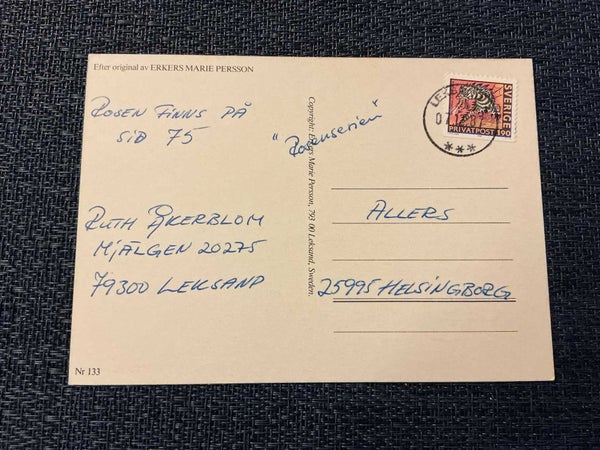 Efter original av ERKERS MARIE PERSSON
ROSEN FINNS PÅ
SID 75
"Rosenserien"
RUTH ÅKERBLOM
MJÄLGEN 20275
79300 LEKSAND
Copyright: Erkers Marie Persson, 793 00 Leksand, Sweden.
SVERIGE
PRIVATPOST 190
ALLERS
25995 HELSINGBORG
Nr 133